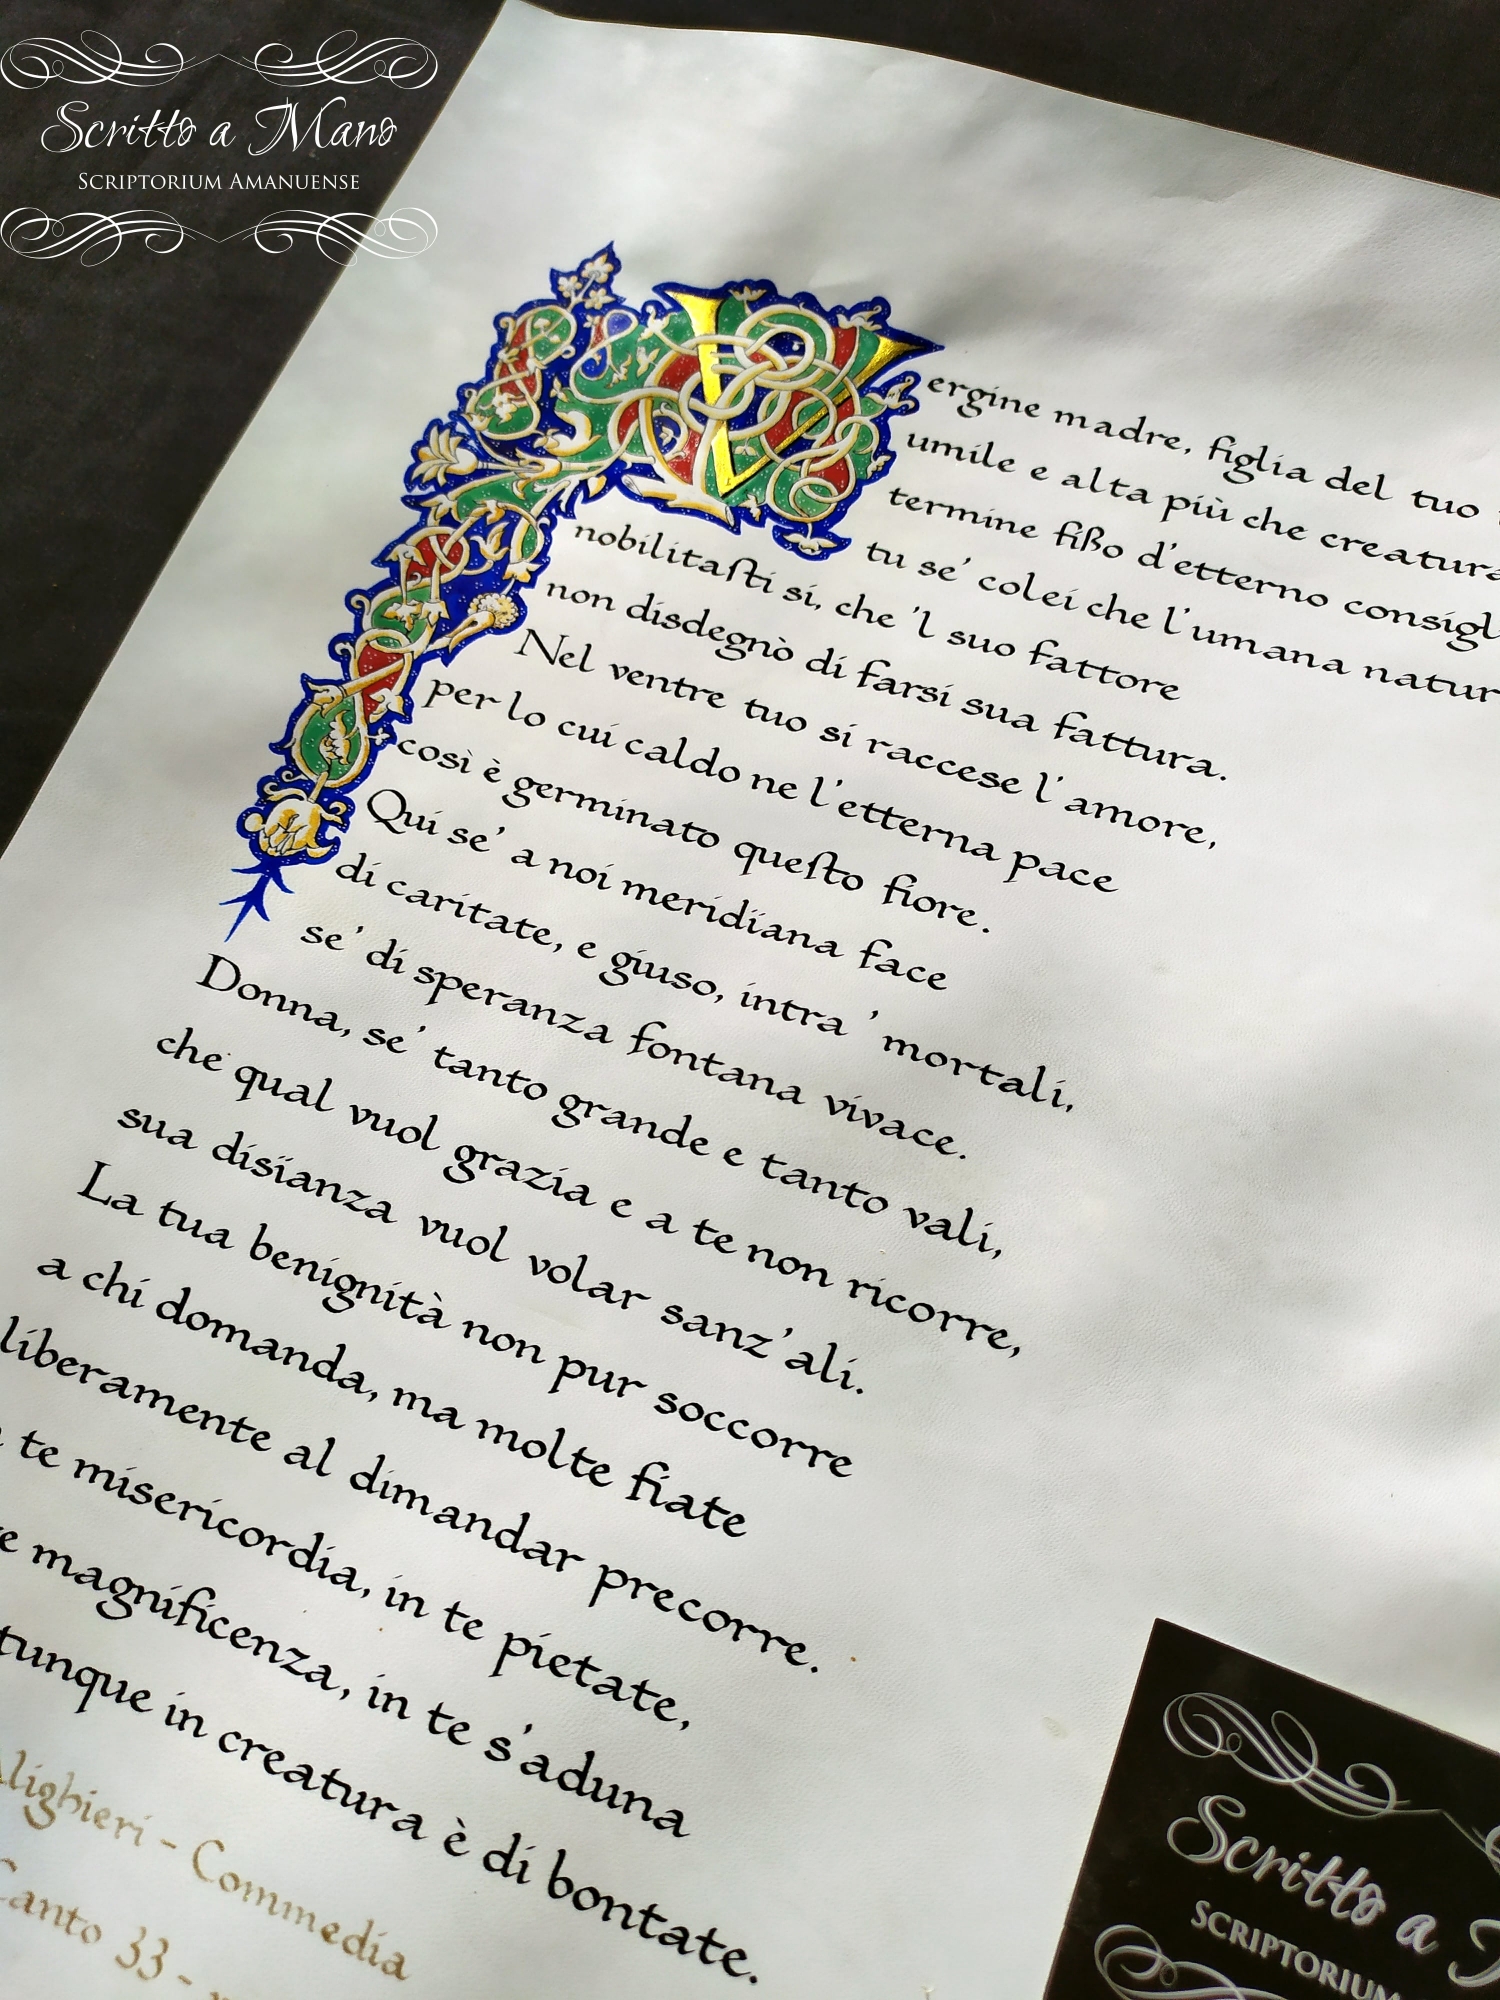 Scritto a Mano
SCRIPTORIUM AMANUENSE
Vergine madre, figlia del tuo
umile e alta più che creatura
termine fißo d'etterno consigl
tu se' colei che l'umana natur
nobilitasti sì, che 'l suo fattore
non disdegnò di farsi sua fattura.
Nel ventre tuo si raccese l'amore,
per lo cui caldo ne l'etterna pace
così è germinato questo fiore.
Qui se' a noi meridïana face
di caritate, e giuso, intra ' mortali,
se' di speranza fontana vivace.
Donna, se' tanto grande e tanto vali,
che qual vuol grazia e a te non ricorre,
sua disïanza vuol volar sanz' ali.
La tua benignità non pur soccorre
a chi domanda, ma molte fiate
liberamente al dimandar precorre.
te misericordia, in te pietate,
e magnificenza, in te s'aduna
tunque in creatura è di bontate.
Alighieri - Commedia
Canto 33 -
Scritto a
SCRIPTORIUM